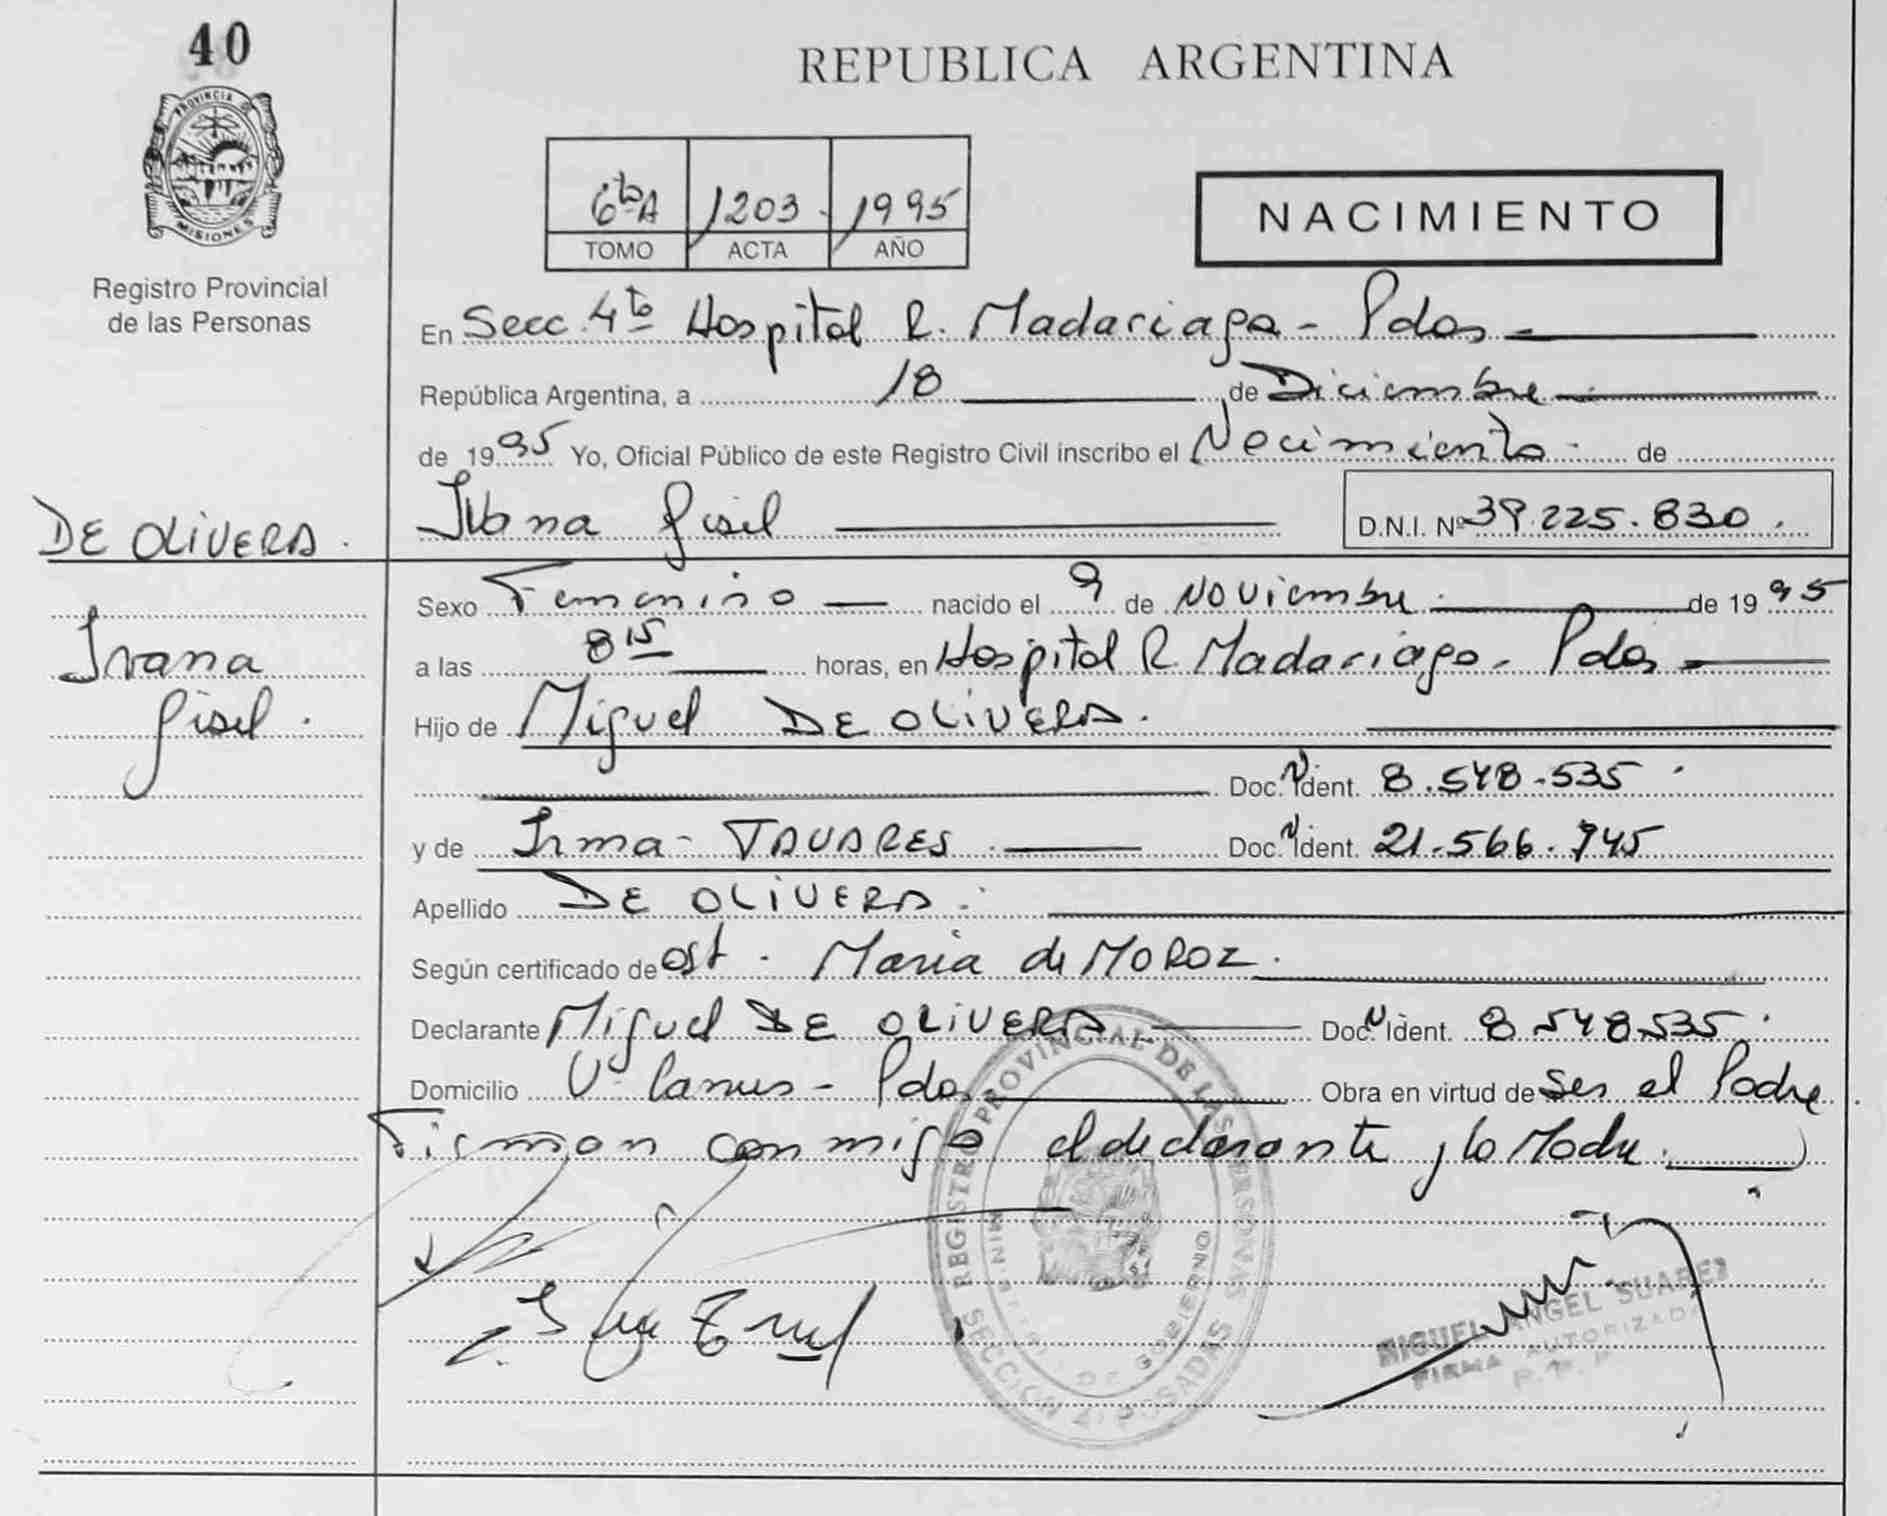 40
PROVINCIA DE
MISIONES
Registro Provincial
de las Personas
REPUBLICA ARGENTINA
6to A 1203 1995
TOMO ACTA AÑO
NACIMIENTO
En Secc. 4to Hospital R. Madariaga - Pdas
República Argentina, a 18 de Diciembre
de 1995 Yo, Oficial Público de este Registro Civil inscribo el Nacimiento de
DE OLIVERA. Ivana Gisel D.N.I. Nº 39.225.830.
Ivana
Gisel.
Sexo Femenino nacido el 9 de Noviembre de 1995
a las 8 15 horas, en Hospital R. Madariaga - Pdas
Hijo de Miguel DE OLIVERA.
Doc. Ident. 8.548.535
y de Irma - TAVARES Doc. Ident. 21.566.745
Apellido DE OLIVERA.
Según certificado de ost. Maria de MOROZ.
Declarante Miguel DE OLIVERA Doc. Ident. 8.548.535.
Domicilio Vª Lanus - Pdas Obra en virtud de ser el Padre
Firman conmigo el declarante y la Madre.
REGISTRO PROVINCIAL DE LAS PERSONAS
DE GOBIERNO
SECCION 4ª POSADAS
MIGUEL ANGEL SUAREZ
FIRMA AUTORIZADA